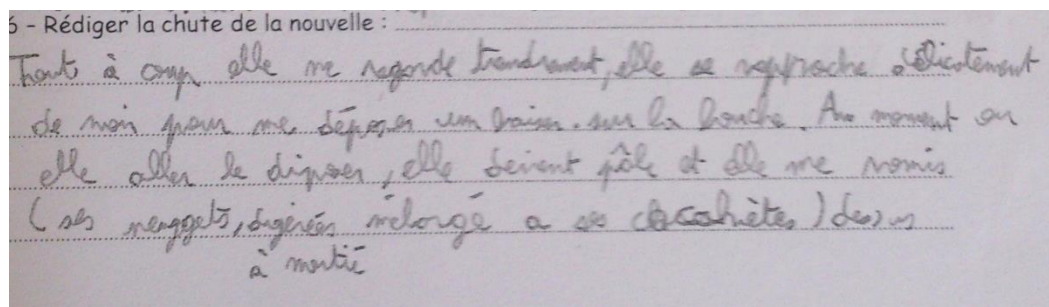 6 - Rédiger la chute de la nouvelle :
Tout à coup elle me regarde trendrement, elle se rapproche délicatement
de moi pour me déposer un baiser sur la bouche. Au moment ou
elle aller le diposer, elle devient pâle et elle me vomis
( ses neuggets, digérées mélangé a ses cacahètes ) dessus
à moitié